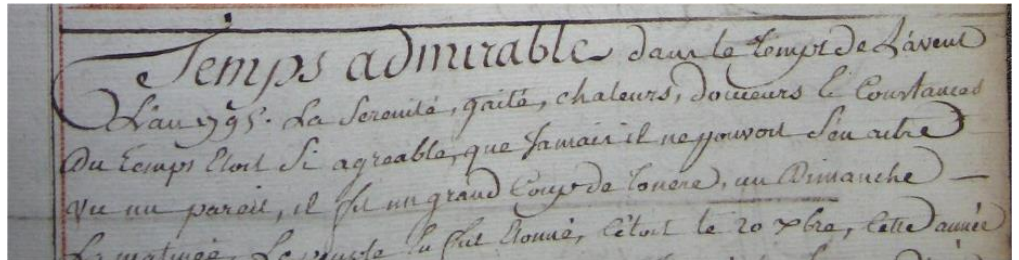 Temps admirable dans le temps de L'avent
L'an 1795. La Serenité, gaité, chaleurs, douceurs & Constances
Du temps Etoit Si agreable, que Jamais il ne pouvoit S'en aitre
vu un pareil, il fit un grand Coup de tonere, un Dimanche —
La matinée, Le peuple fut Etonné, C'étoit le 20 Xbre, Cette année